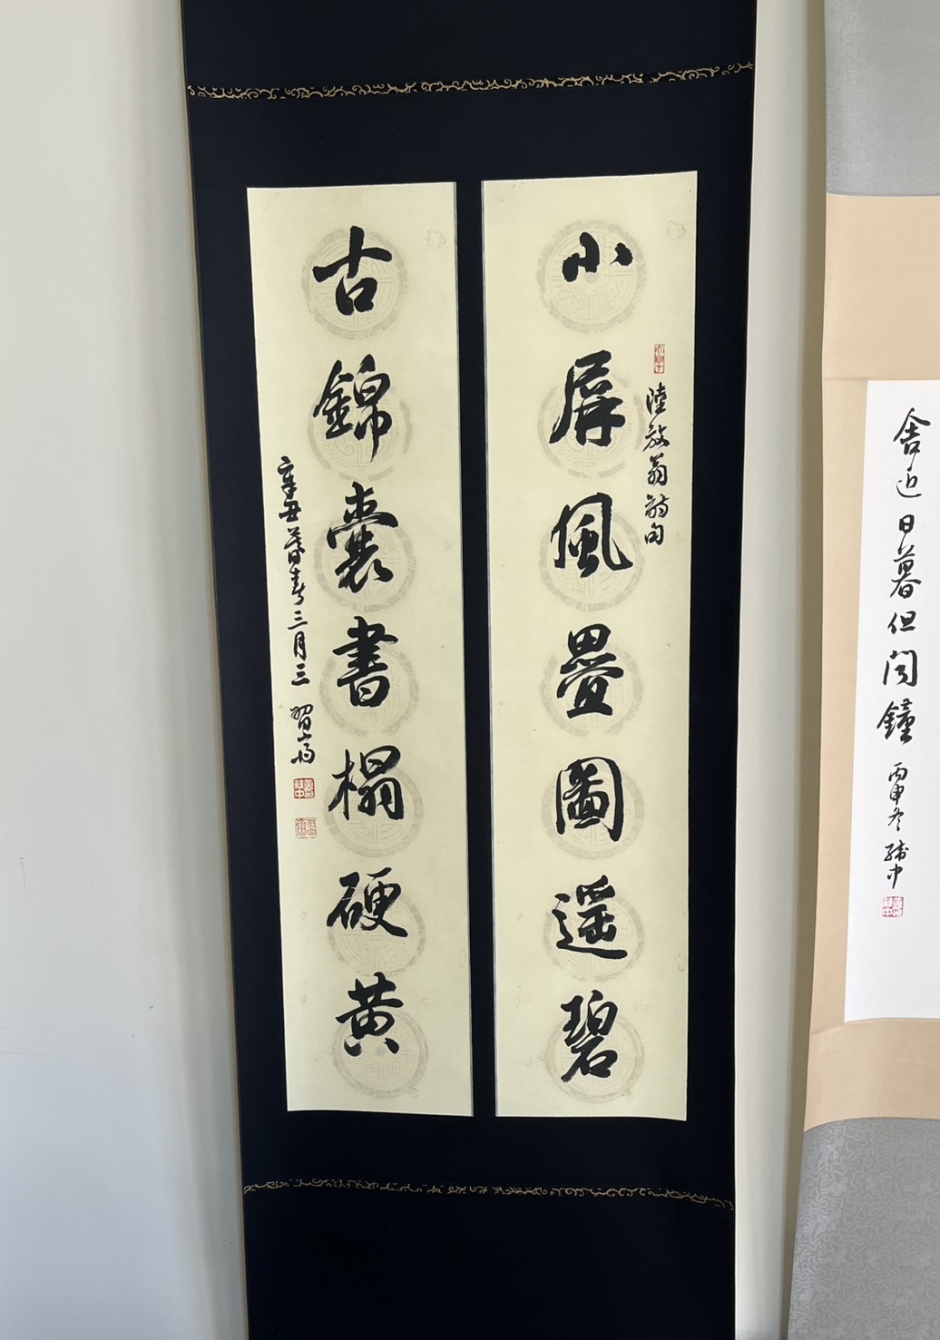 小屏風疊圖遥碧
陸放翁詩句
古錦囊書榻硬黄
辛丑暮春三月三
舍近日暮但闻鐘
丙申冬